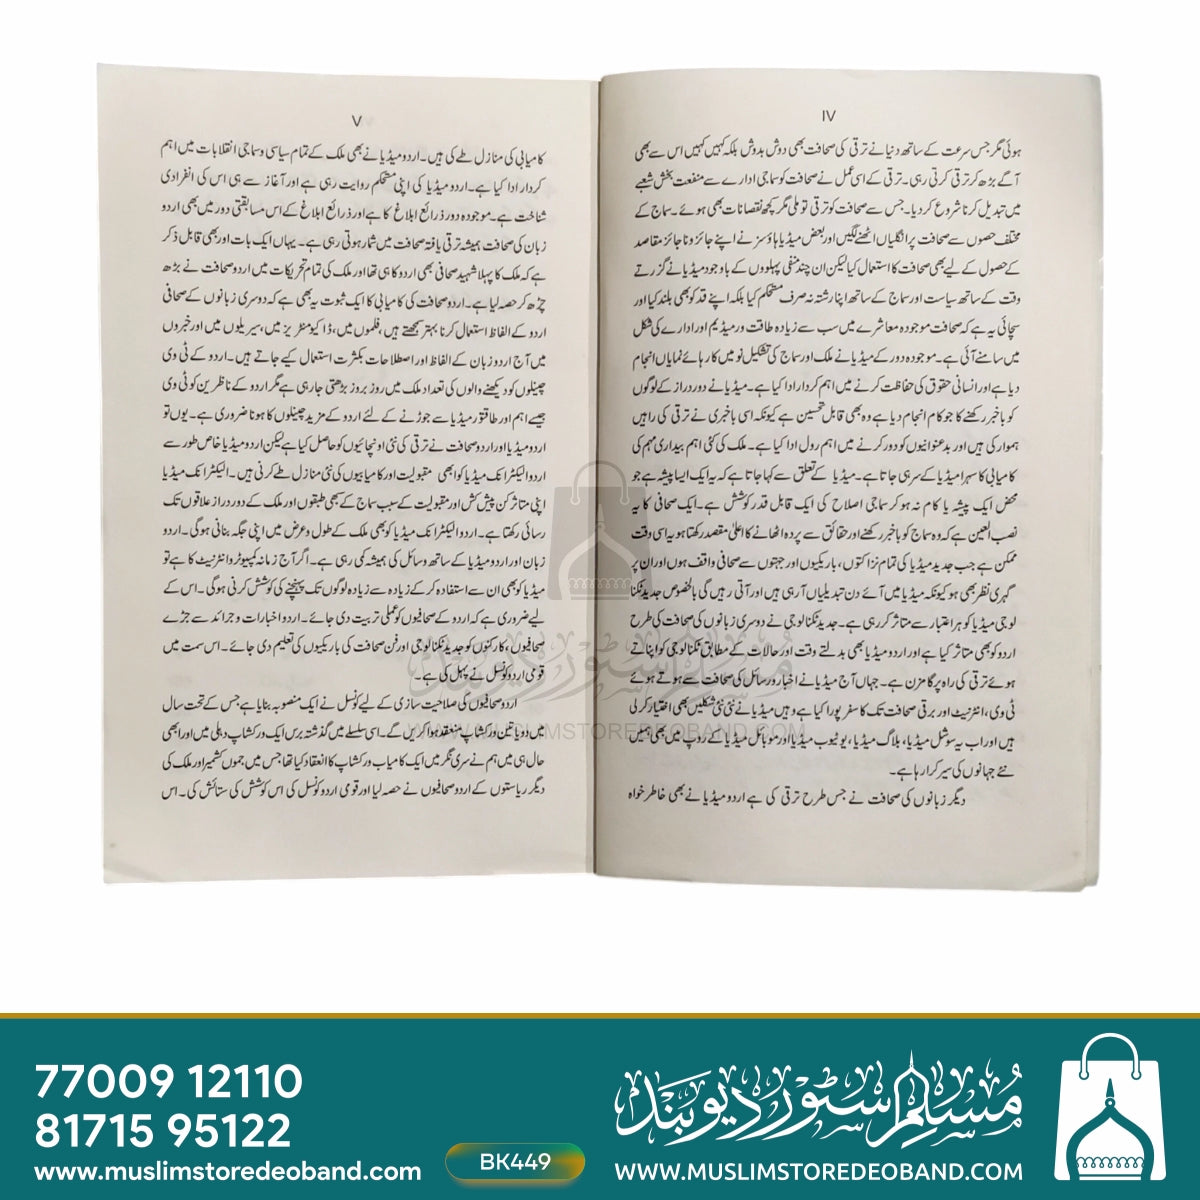 IV
ہوئی مگر جس سرعت کے ساتھ دنیا نے ترقی کی صحافت بھی دوش بدوش بلکہ کہیں کہیں اس سے بھی
آگے بڑھ کر ترقی کرتی رہی۔ ترقی کے اسی عمل نے صحافت کو سماجی ادارے سے منفعت بخش شعبے
میں تبدیل کرنا شروع کردیا۔ جس سے صحافت کو ترقی تو ملی مگر کچھ نقصانات بھی ہوئے۔ سماج کے
مختلف حصوں سے صحافت پر انگلیاں اٹھنے لگیں اور بعض میڈیا ہاؤسز نے اپنے جائز و ناجائز مقاصد
کے حصول کے لیے بھی صحافت کا استعمال کیا لیکن ان چند منفی پہلووں کے باوجود میڈیا نے گزرتے
وقت کے ساتھ سیاست اور سماج کے ساتھ اپنا رشتہ نہ صرف مستحکم کیا بلکہ اپنے قد کو بھی بلند کیا اور
سچائی یہ ہے کہ صحافت موجودہ معاشرے میں سب سے زیادہ طاقت ور میڈیم اور ادارے کی شکل
میں سامنے آئی ہے۔ موجودہ دور کے میڈیا نے ملک اور سماج کی تشکیل نو میں کارہائے نمایاں انجام
دیا ہے اور انسانی حقوق کی حفاظت کرنے میں اہم کردار ادا کیا ہے۔ میڈیا نے دور دراز کے لوگوں
کو باخبر رکھنے کا جو کام انجام دیا ہے وہ بھی قابل تحسین ہے کیونکہ اسی باخبری نے ترقی کی راہیں
ہموار کی ہیں اور بدعنوانیوں کو دور کرنے میں اہم رول ادا کیا ہے۔ ملک کی کئی اہم بیداری مہم کی
کامیابی کا سہرا میڈیا کے سر ہی جاتا ہے۔ میڈیا کے تعلق سے کہا جاتا ہے کہ یہ ایک ایسا پیشہ ہے جو
محض ایک پیشہ یا کام نہ ہو کر سماجی اصلاح کی ایک قابل قدر کوشش ہے۔ ایک صحافی کا یہ
نصب العین ہے کہ وہ سماج کو باخبر رکھنے اور حقائق سے پردہ اٹھانے کا اعلیٰ مقصد رکھتا ہو یہ اسی وقت
ممکن ہے جب جدید میڈیا کی تمام نزاکتوں، باریکیوں اور جہتوں سے صحافی واقف ہوں اور ان پر
گہری نظر بھی ہو کیونکہ میڈیا میں آئے دن تبدیلیاں آرہی ہیں اور آتی رہیں گی بالخصوص جدید ٹکنا
لوجی میڈیا کو ہر اعتبار سے متاثر کر رہی ہے۔ جدید ٹکنالوجی نے دوسری زبانوں کی صحافت کی طرح
اردو کو بھی متاثر کیا ہے اور اردو میڈیا بھی بدلتے وقت اور حالات کے مطابق ٹکنالوجی کو اپناتے
ہوئے ترقی کی راہ پر گامزن ہے۔ جہاں آج میڈیا نے اخبار و رسائل کی صحافت سے ہوتے ہوئے
ٹی وی، انٹرنیٹ اور برقی صحافت تک کا سفر پورا کیا ہے وہیں میڈیا نے نئی نئی شکلیں بھی اختیار کر لی
ہیں اور اب یہ سوشل میڈیا، بلاگ میڈیا، یوٹیوب میڈیا اور موبائل میڈیا کے روپ میں بھی ہمیں
نئے جہانوں کی سیر کرا رہا ہے۔
دیگر زبانوں کی صحافت نے جس طرح ترقی کی ہے اردو میڈیا نے بھی خاطر خواہ
V
کامیابی کی منازل طے کی ہیں۔ اردو میڈیا نے بھی ملک کے تمام سیاسی و سماجی انقلابات میں اہم
کردار ادا کیا ہے۔ اردو میڈیا کی اپنی مستحکم روایت رہی ہے اور آغاز سے ہی اس کی انفرادی
شناخت ہے۔ موجودہ دور ذرائع ابلاغ کا ہے اور ذرائع ابلاغ کے اس مسابقتی دور میں بھی اردو
زبان کی صحافت ہمیشہ ترقی یافتہ صحافت میں شمار ہوتی رہی ہے۔ یہاں ایک بات اور بھی قابل ذکر
ہے کہ ملک کا پہلا شہید صحافی بھی اردو کا ہی تھا اور ملک کی تمام تحریکات میں اردو صحافت نے بڑھ
چڑھ کر حصہ لیا ہے۔ اردو صحافت کی کامیابی کا ایک ثبوت یہ بھی ہے کہ دوسری زبانوں کے صحافی
اردو کے الفاظ استعمال کرنا بہتر سمجھتے ہیں، فلموں میں، ڈاکیومنٹریز میں، سیریلوں میں اور خبروں
میں آج اردو زبان کے الفاظ اور اصطلاحات بکثرت استعمال کیے جاتے ہیں۔ اردو کے ٹی وی
چینلوں کو دیکھنے والوں کی تعداد ملک میں روز بروز بڑھتی جارہی ہے مگر اردو کے ناظرین کو ٹی وی
جیسے اہم اور طاقتور میڈیا سے جوڑنے کے لئے اردو کے مزید چینلوں کا ہونا ضروری ہے۔ یوں تو
اردو میڈیا اور اردو صحافت نے ترقی کی نئی اونچائیوں کو حاصل کیا ہے لیکن اردو میڈیا خاص طور سے
اردو الیکٹرانک میڈیا کو ابھی مقبولیت اور کامیابیوں کی نئی منازل طے کرنی ہیں۔ الیکٹرانک میڈیا
اپنی متاثر کن پیش کش اور مقبولیت کے سبب سماج کے بھی طبقوں اور ملک کے دور دراز علاقوں تک
رسائی رکھتا ہے۔ اردو الیکٹرانک میڈیا کو بھی ملک کے طول و عرض میں اپنی جگہ بنانی ہوگی۔ اردو
زبان اور اردو میڈیا کے ساتھ وسائل کی ہمیشہ کمی رہی ہے۔ اگر آج زمانہ کمپیوٹر و انٹرنیٹ کا ہے تو
میڈیا کو بھی ان سے استفادہ کر کے زیادہ سے زیادہ لوگوں تک پہنچنے کی کوشش کرنی ہوگی۔ اس کے
لیے ضروری ہے کہ اردو کے صحافیوں کو عملی تربیت دی جائے۔ اردو اخبارات و جرائد سے جڑے
صحافیوں، کارکنوں کو جدید ٹکنالوجی اور فن صحافت کی باریکیوں کی تعلیم دی جائے۔ اس سمت میں
قومی اردو کونسل نے پہل کی ہے۔
اردو صحافیوں کی صلاحیت سازی کے لیے کونسل نے ایک منصوبہ بنایا ہے جس کے تحت سال
میں دو یا تین ورکشاپ منعقد ہوا کریں گے۔ اسی سلسلے میں گذشتہ برس ایک ورکشاپ دہلی میں اور ابھی
حال ہی میں ہم نے سری نگر میں ایک کامیاب ورکشاپ کا انعقاد کیا تھا جس میں جموں کشمیر اور ملک کی
دیگر ریاستوں کے اردو صحافیوں نے حصہ لیا اور قومی اردو کونسل کی اس کوشش کی ستائش کی۔ اس
مسلم سٹور دیوبند
WWW.MUSLIMSTOREDEOBAND.COM
77009 12110
81715 95122
www.muslimstoredeoband.com
BK449
مسلم سٹور دیوبند
WWW.MUSLIMSTOREDEOBAND.COM